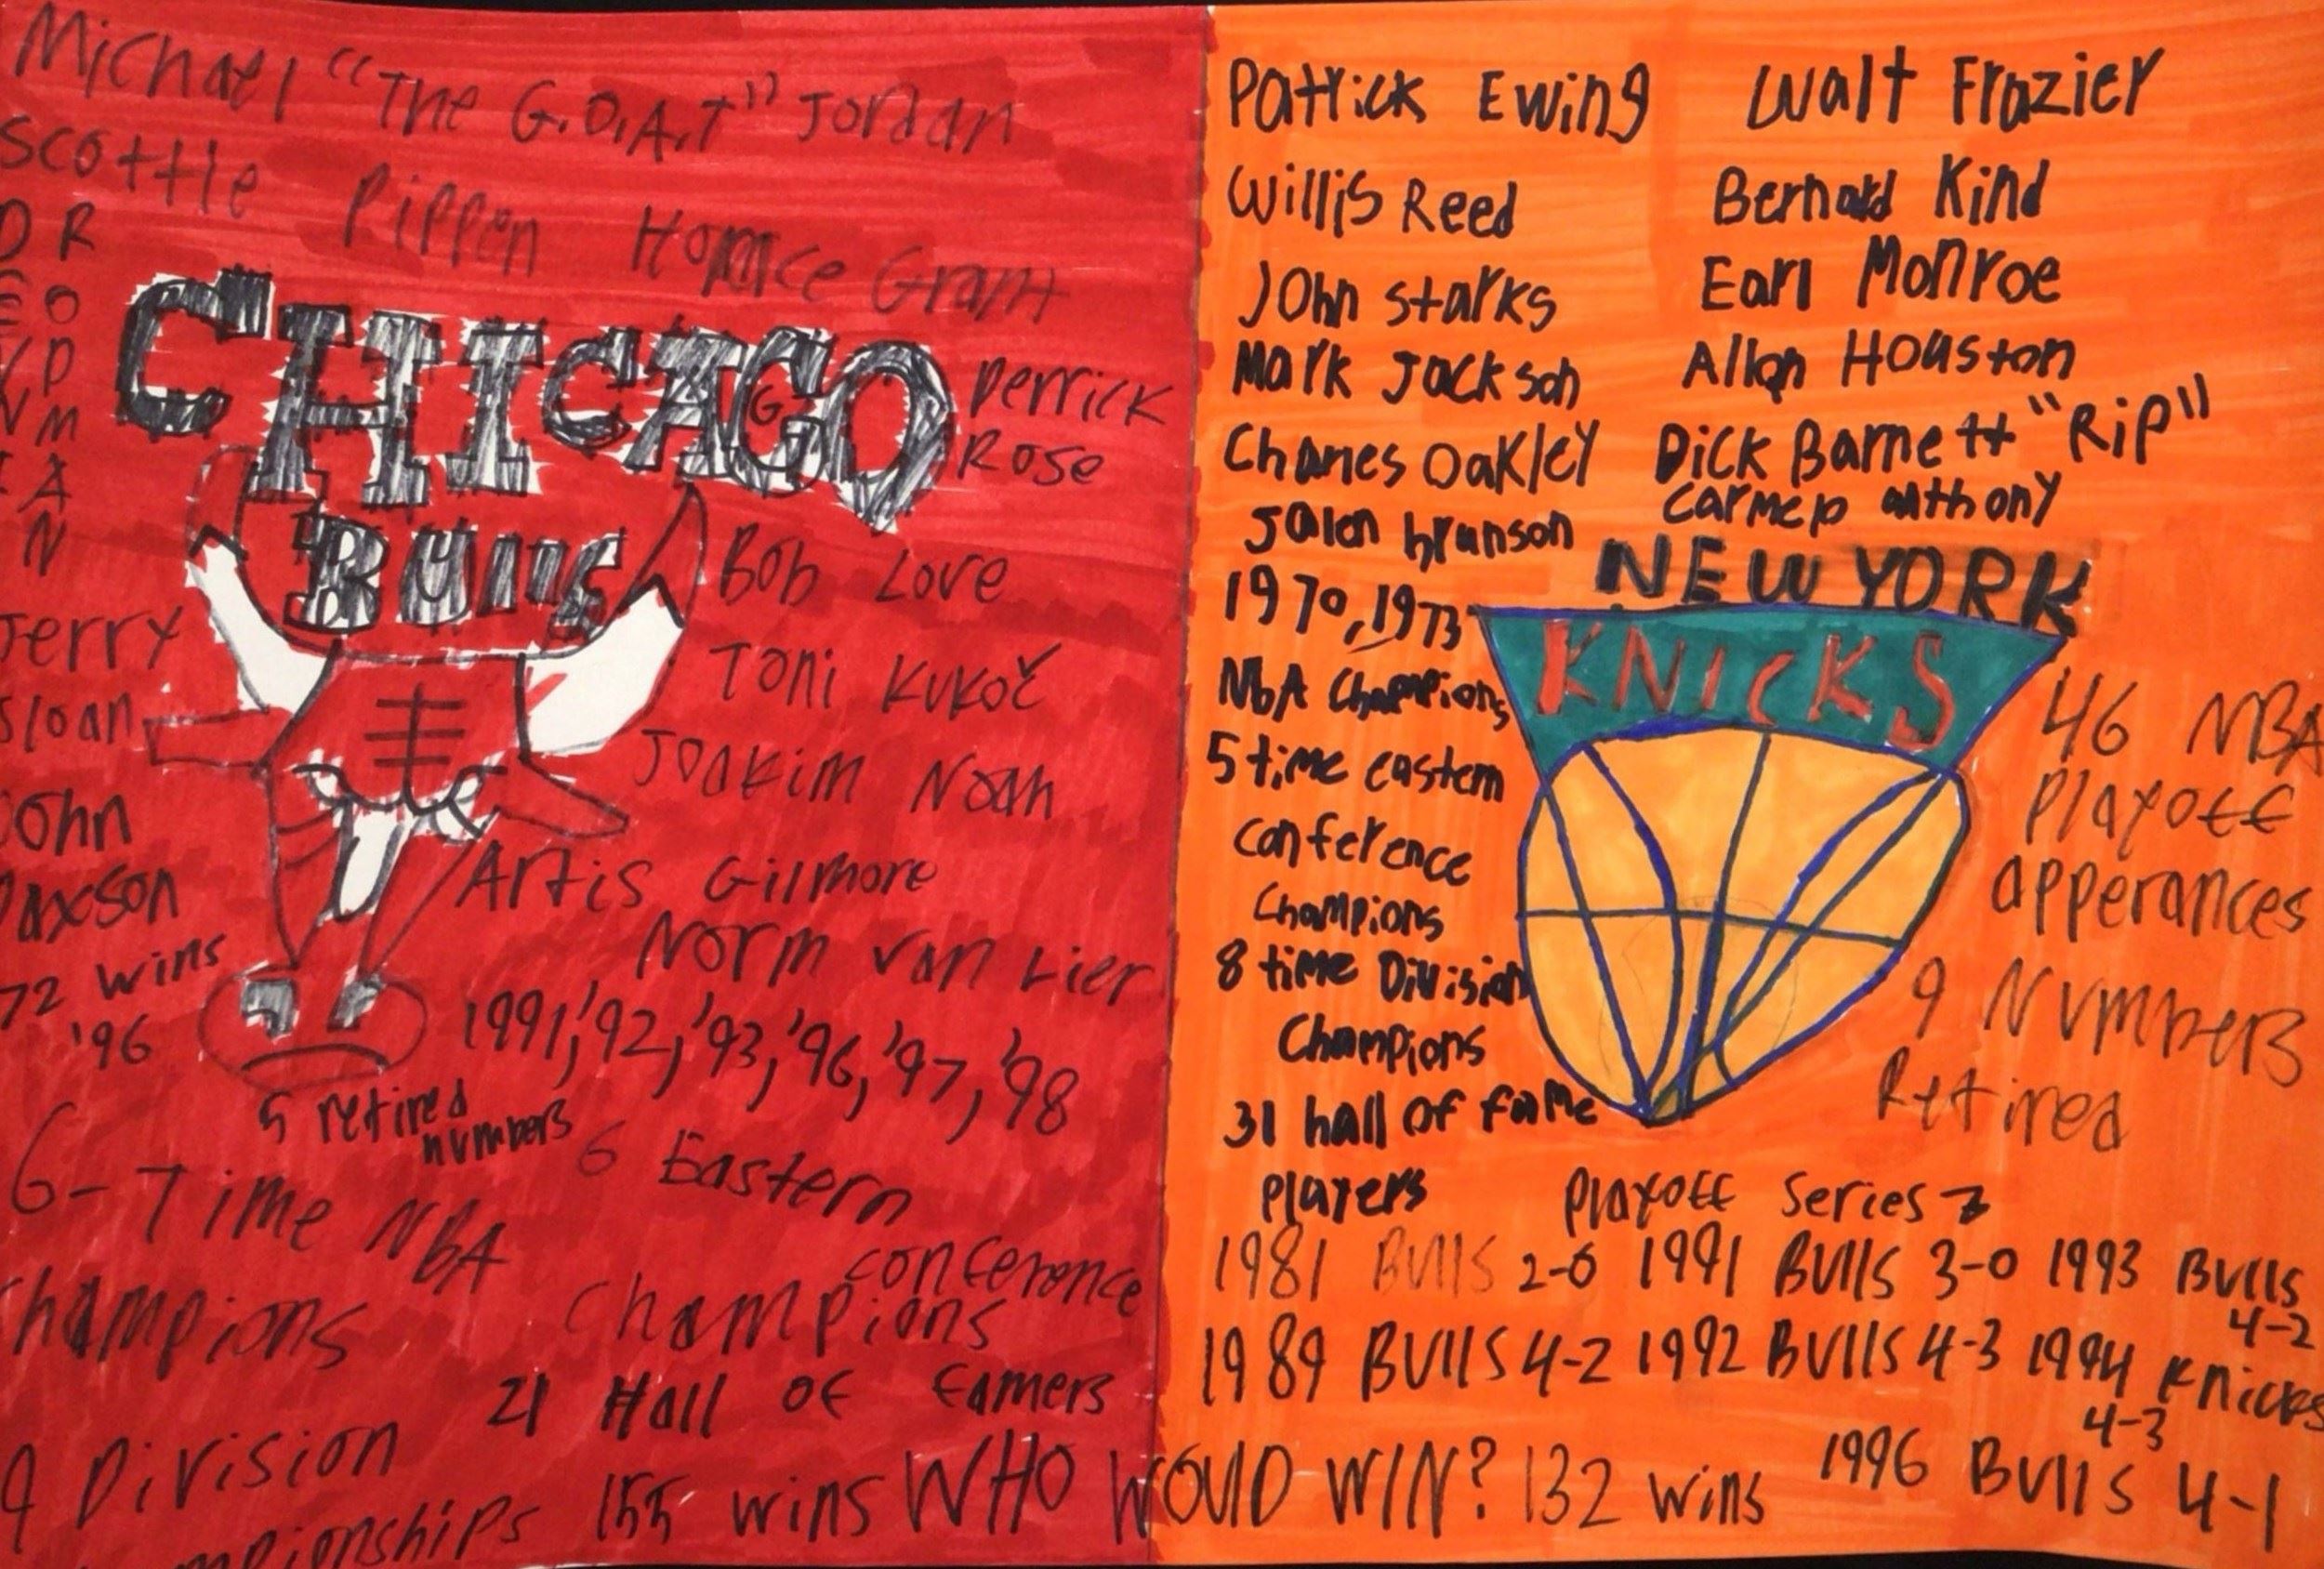 Michael "The G.O.A.T" Jordan
Scottie Pippen Horace Grant
D R
E O
N D
N M
I A
N
CHICAGO
BULLS
Derrick
Rose
Bob Love
Toni Kukoč
Joakim Noah
Jerry
Sloan
John
Paxson
Artis Gilmore
Norm Van Lier
72 wins
'96
1991,'92,'93,'96,'97,'98
5 retired
numbers
6-Time NBA
Champions
6 Eastern
conference
Champions
21 Hall of famers
9 Division
155 wins
WHO WOULD WIN?
Patrick Ewing
Willis Reed
John Starks
Mark Jackson
Charles Oakley
Jalen brunson
1970, 1973
NbA Champions
5 time eastern
conference
Champions
8 time Division
Champions
31 hall of fame
players
Walt Frazier
Bernard Kind
Earl Monroe
Allan Houston
Dick Barnett "Rip"
Carmelo anthony
NEW YORK
KNICKS
46 NBA
Playoff
apperances
9 Numbers
Retired
Playoff Series
1981 BUllS 2-0 1991 BUllS 3-0 1993 BUllS
4-2
1989 BUllS 4-2 1992 BUllS 4-3 1994 Knicks
4-3
132 wins 1996 BUllS 4-1